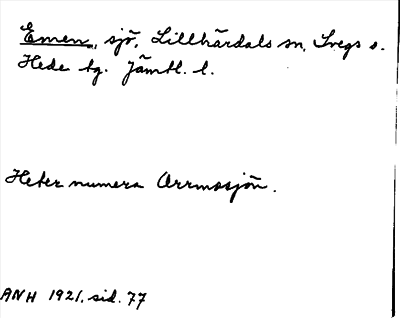 Emen, sjö, Lillhärdals sn, Svegs o.
Hede tg. Jämtl. l.
Heter numera Orrmosjön.
ANH 1921, sid. 77